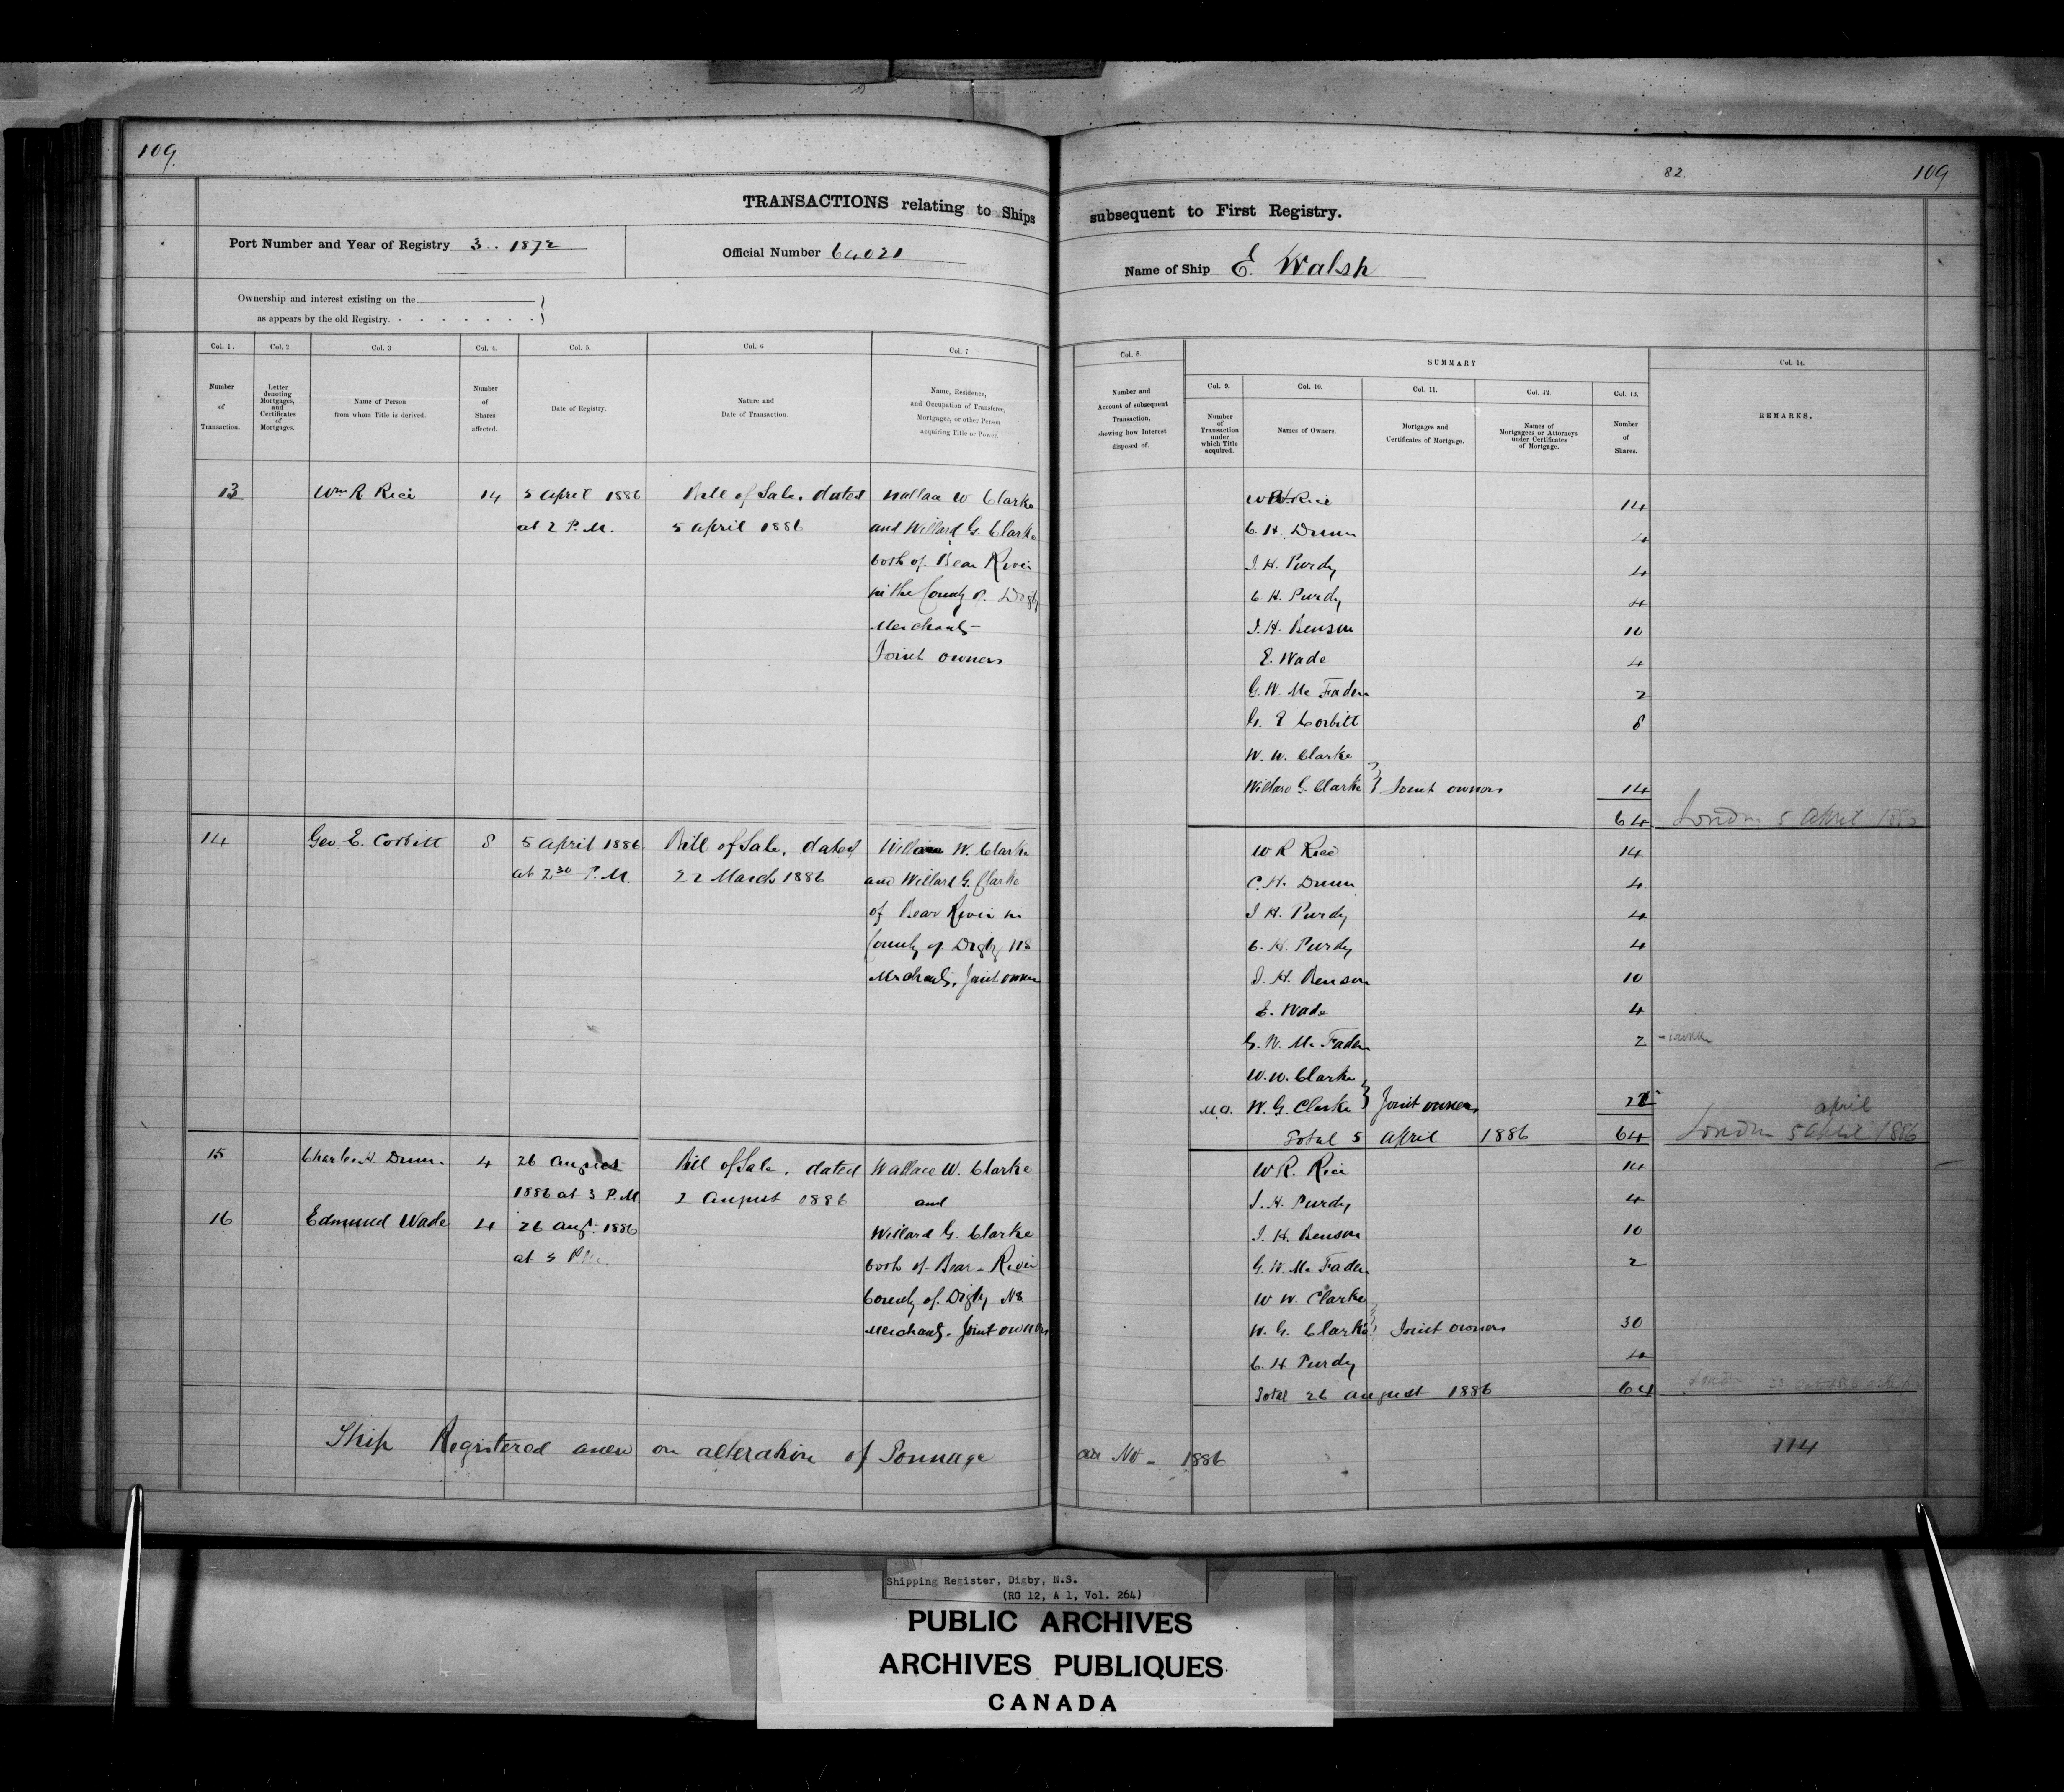 109.
TRANSACTIONS relating to Ships
Port Number and Year of Registry 3.. 1872
Official Number 64021
Ownership and interest existing on the
as appears by the old Registry.
Col. 1.
Number
of
Transaction.
Col. 2
Letter
denoting
Mortgages,
and
Certificates
of
Mortgages.
Col. 3
Name of Person
from whom Title is derived.
Col. 4.
Number
of
Shares
affected.
Col. 5.
Date of Registry.
Col. 6
Nature and
Date of Transaction.
Col. 7
Name, Residence,
and Occupation of Transferee,
Mortgagee, or other Person
acquiring Title or Power.
13
Wm R. Rice
14
5 April 1886
at 2 P.M.
Bill of Sale. dated
5 april 1886
Wallace W Clarke
and Willard G. Clarke
both of Bear River
in the County of Digby
Merchants
Joint owners
14
Geo E. Corbitt
8
5 april 1886.
at 2 30 P.M
Bill of Sale, dated
22 March 1886
Wallace W. Clarke
and Willard G. Clarke
of Bear River in
County of Digby NS
Merchants, Joint owners
15
Charles H. Dunn.
4
26 august
1886 at 3 P.M
Bill of Sale. dated
2 august 1886
Wallace W. Clarke
and
Willard G. Clarke
both of Bear River
County of Digby NS
Merchants. Joint owners
16
Edmund Wade
4
26 aug. 1886
at 3 P.M.
Ship Registered anew on alteration of Tonnage
82
109
subsequent to First Registry.
Name of Ship E. Walsh
Col. 8.
Number and
Account of subsequent
Transaction,
showing how Interest
disposed of.
SUMMARY
Col. 9.
Number
of
Transaction
under
which Title
acquired.
Col. 10.
Names of Owners.
Col. 11.
Mortgages and
Certificates of Mortgage.
Col. 12
Names of
Mortgagees or Attorneys
under Certificates
of Mortgage.
Col. 13.
Number
of
Shares.
Col. 14.
REMARKS.
W R Rice 14
C. H. Dunn 4
J. H. Purdy 4
C. H. Purdy 4
J. H. Benson 10
E. Wade 4
G. W. Mc Faden 2
G. E Corbitt 8
W. W. Clarke
Willard G. Clarke } Joint owners 14
64 London 5 April 1886
W R Rice 14
C. H. Dunn 4
J H. Purdy 4
C. H. Purdy 4
J. H. Benson 10
E. Wade 4
G. W. Mc Faden 2
W. W. Clarke
W. G. Clarke } Joint owners 22
april
Total 5 april 1886 64 London 5 april 1886
W R. Rice 14
J. H. Purdy 4
J. H. Benson 10
G. W. Mc Faden 2
W W. Clarke
W. G. Clarke } Joint owners 30
C. H Purdy 4
Total 26 august 1886 64
as No - 1886
114
Shipping Register, Digby, N.S.
(RG 12, A 1, Vol. 264)
PUBLIC ARCHIVES
ARCHIVES PUBLIQUES
CANADA